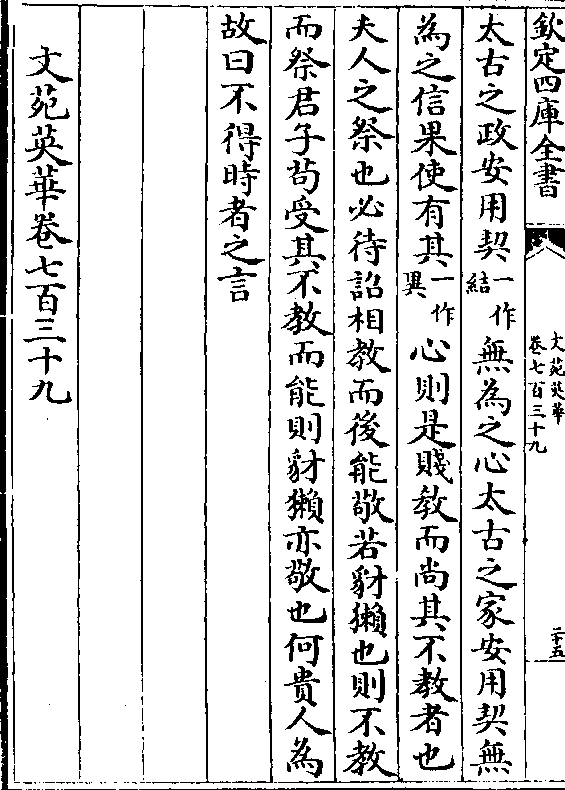 欽定四庫全書
文苑英華
卷七百三十九
二十五
太古之政安用契一作結無為之心太古之家安用契無
為之信果使有其一作異心則是賤教而尚其不教者也
夫人之祭也必待詔相教而後能敬若豺獺也則不教
而祭君子苟受其不教而能則豺獺亦敬也何貴人為
故曰不得時者之言
文苑英華卷七百三十九